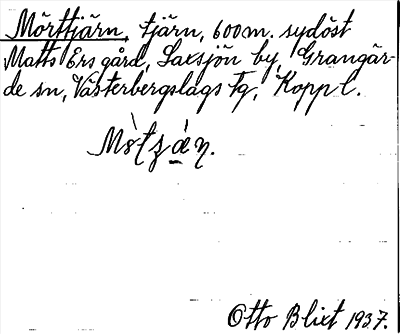 Mörttjärn, tjärn, 600 m. sydöst
Matts Ers gård, Saxsjön by, Grangär-
de sn, Västerbergslags Fg, Koppl.
Otto Blixt 1937.